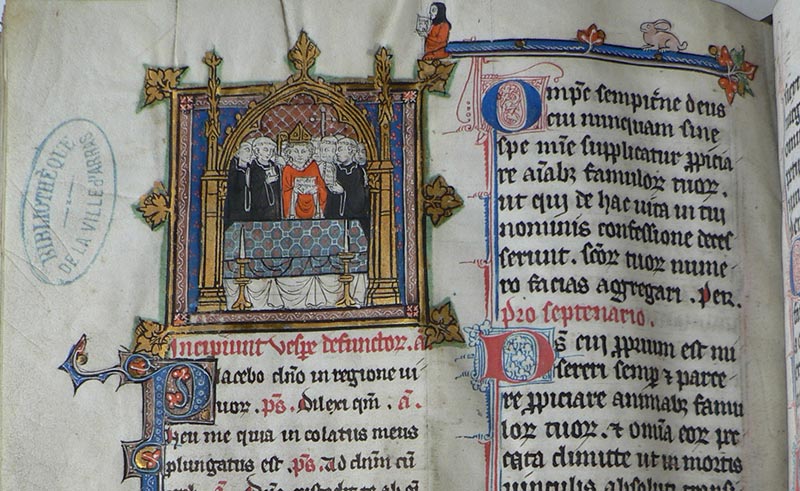 BIBLIOTHÈQUE
DE LA VILLE D'ARRAS
Incipiunt vesꝑe defunctoꝝ. a
Placebo dño in regione ui
uoꝝ. ps̄. Dilexi qm̄. a᷃.
heu me quia in colatus meus
plungatus est. ps̄. ad dnm̄ cū
Omp̄s sempit̄ne deus
cui nunquam sine
spe mīe supplicatur ꝓpicia
re aīabꝫ famuloꝝ tuoꝝ.
ut qui de hac uita in tui
nominis confessione deces
serunt. scōꝝ tuoꝝ nume
ro facias aggregari. Per.
Pro septenario.
Ds̄ cui ꝓprium est mi
sereri semꝑ ⁊ parce
re ꝓpiciare animabꝫ famu
loꝝ tuoꝝ. ⁊ omīa eoꝝ pec
cata dimitte ut in mortis
uinculis absoluti trans